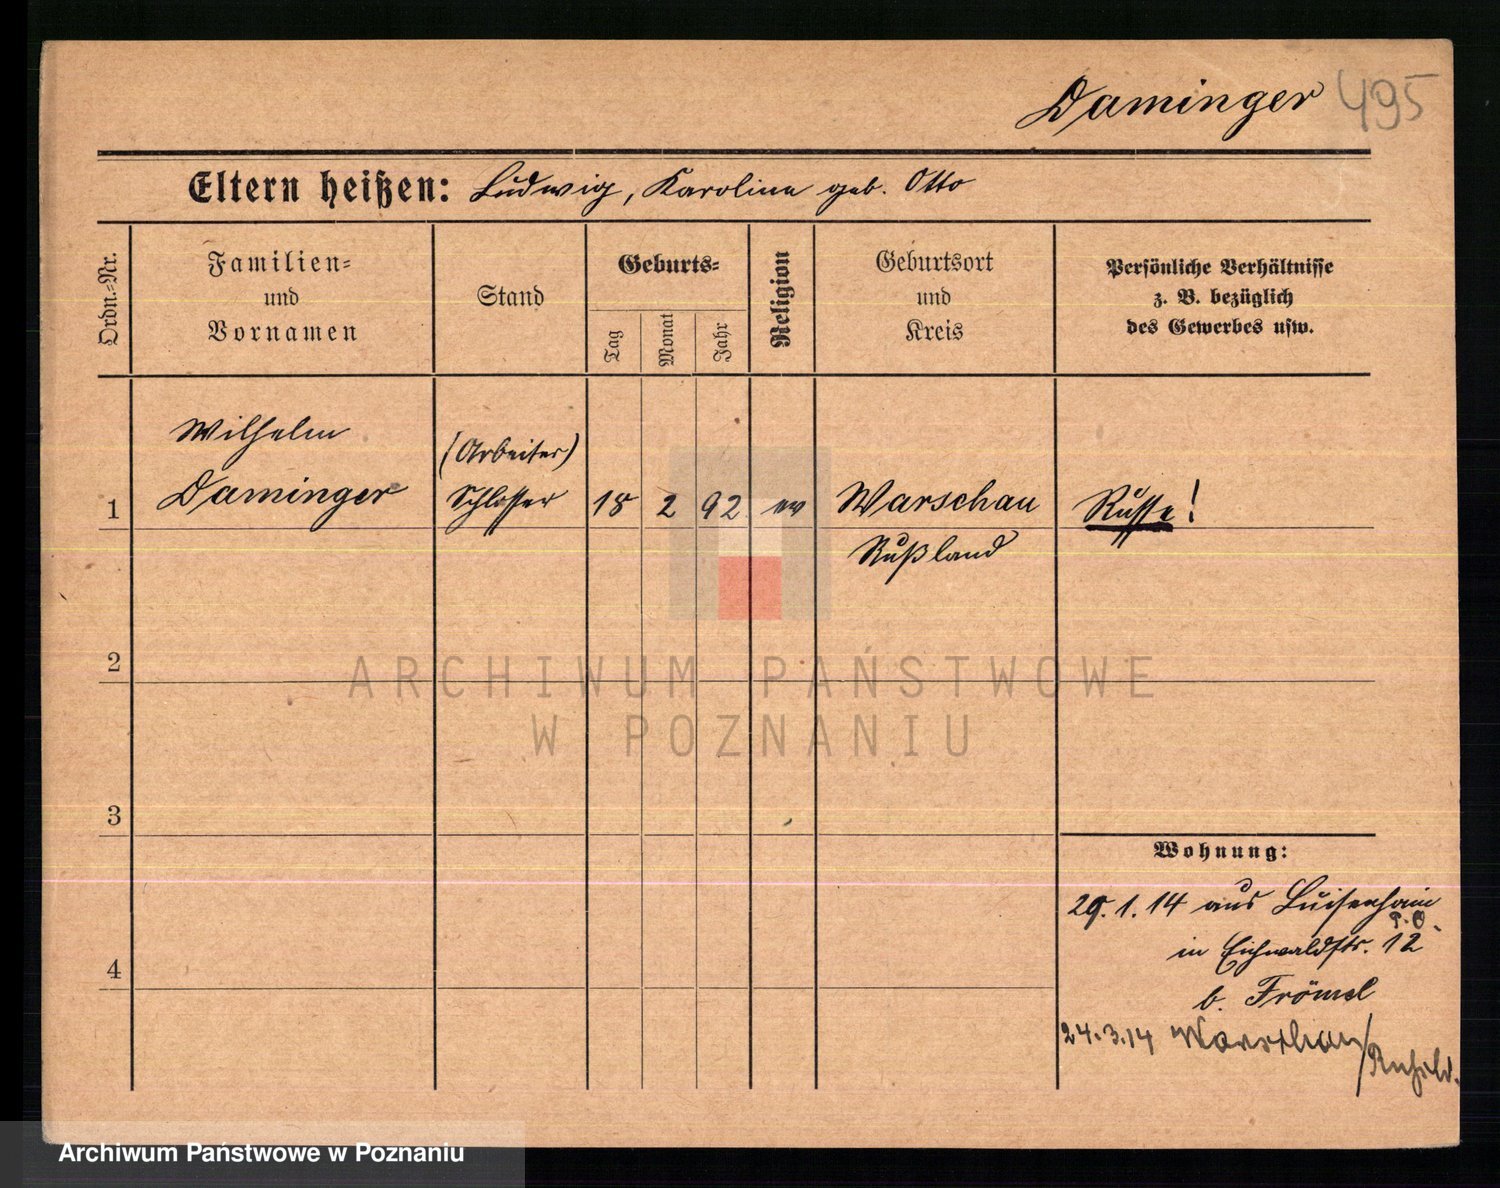 Daminger 495
Eltern heißen: Ludwig, Karolina geb. Otto
Ordn.-Nr.
Familien-
und
Vornamen
Stand
Geburts-
Tag
Monat
Jahr
Religion
Geburtsort
und
Kreis
Persönliche Verhältnisse
z. B. bezüglich
des Gewerbes usw.
Wilhelm
(Arbeiter)
1 Daminger Schlosser 18 2 92 ev Warschau Russe!
Rußland
2
ARCHIWUM PAŃSTWOWE
W POZNANIU
3
Wohnung:
29.1.14 aus Luisenhain
P.O.
in Eichwaldstr. 12
4
b. Frömel
24.3.14 Warschau/
Rußld.
Archiwum Państwowe w Poznaniu